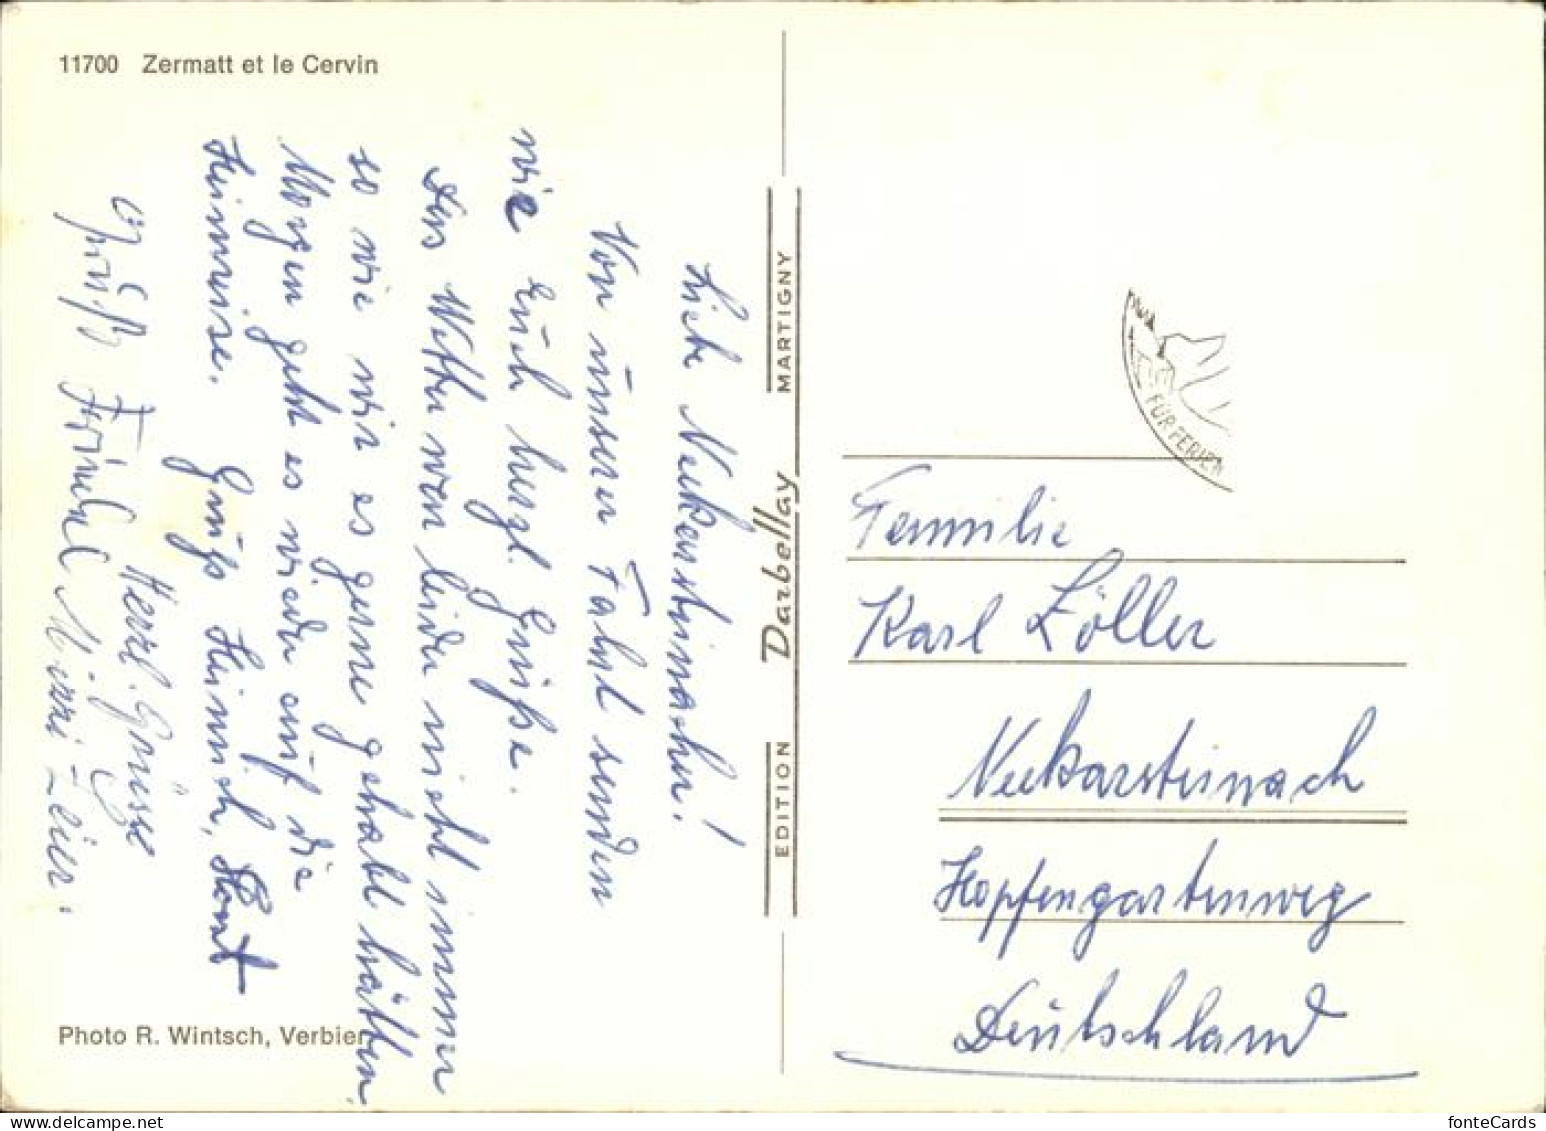 11700 Zermatt et le Cervin
Liebe Neckarsteinacher!
Von unserer Fahrt senden
wir Euch herzl. Grüße.
Das Wetter war leider nicht immer
so wie wir es gerne gehabt hätten.
Morgen geht es wieder auf die
Heimreise. Gruß Heinrich,
Herzl. Grüsse
Gruß Mizzi
Photo R. Wintsch, Verbier
EDITION Darbellay MARTIGNY
FÜR FERIEN
Familie
Karl Zöller
Neckarsteinach
Hopfengartenweg
Deutschland
www.delcampe.net
fonteCards